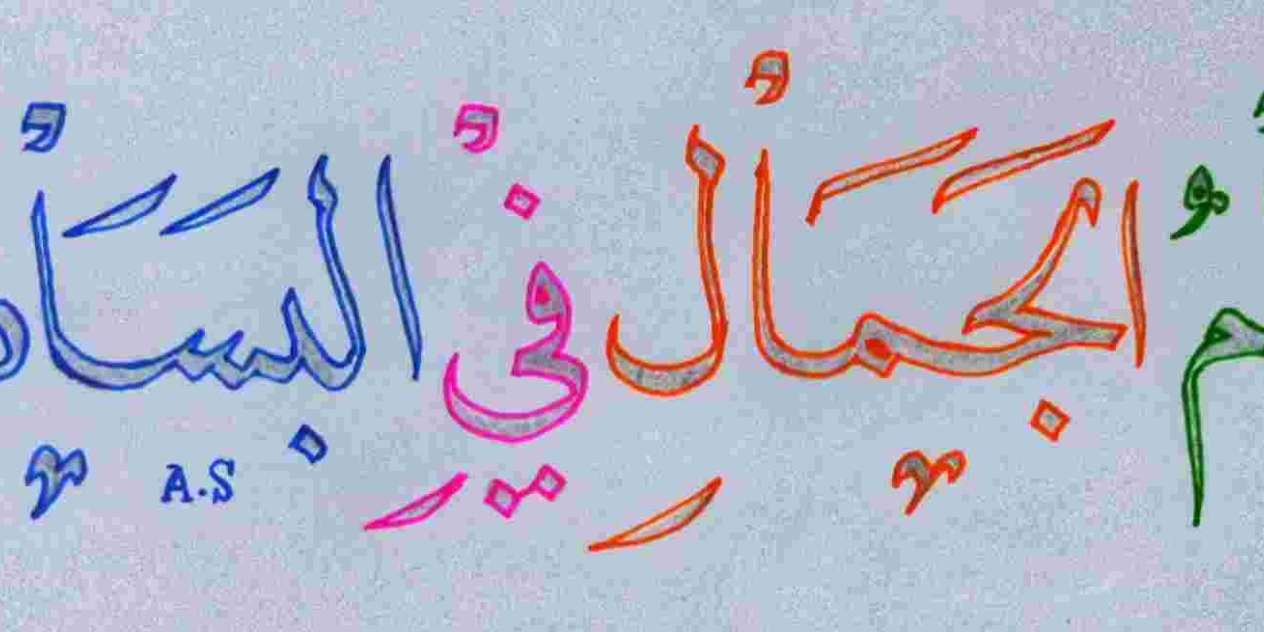 مُ الجَمَالِ فِي البَسَا
A.S